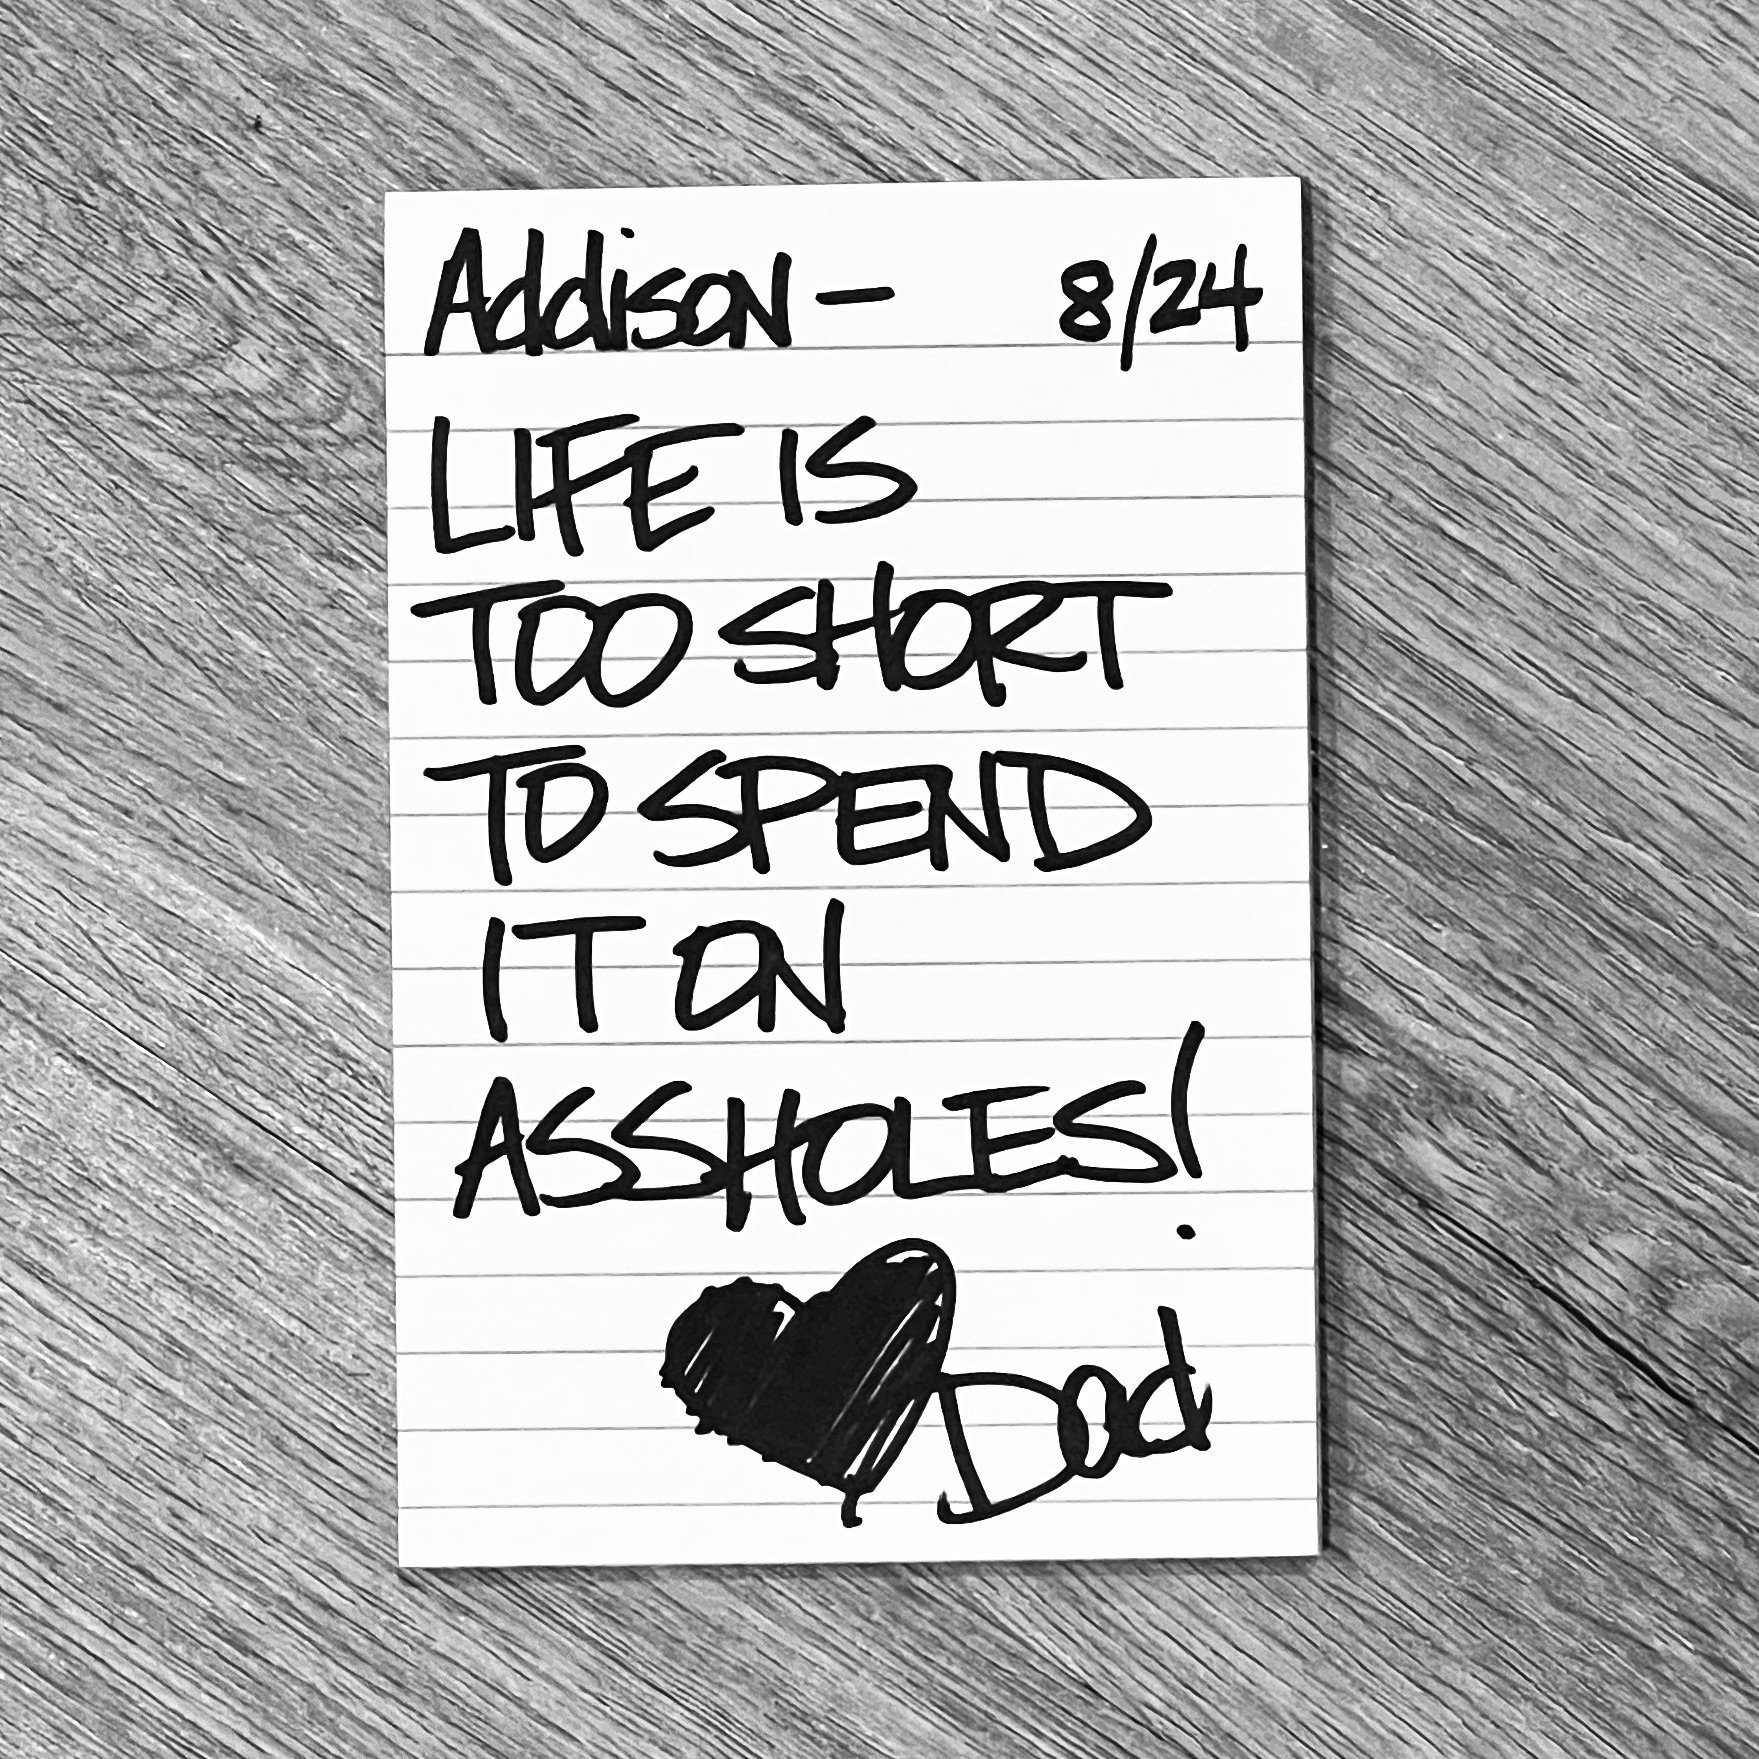 Addison — 8/24
LIFE IS
TOO SHORT
TO SPEND
IT ON
ASSHOLES!
Dad